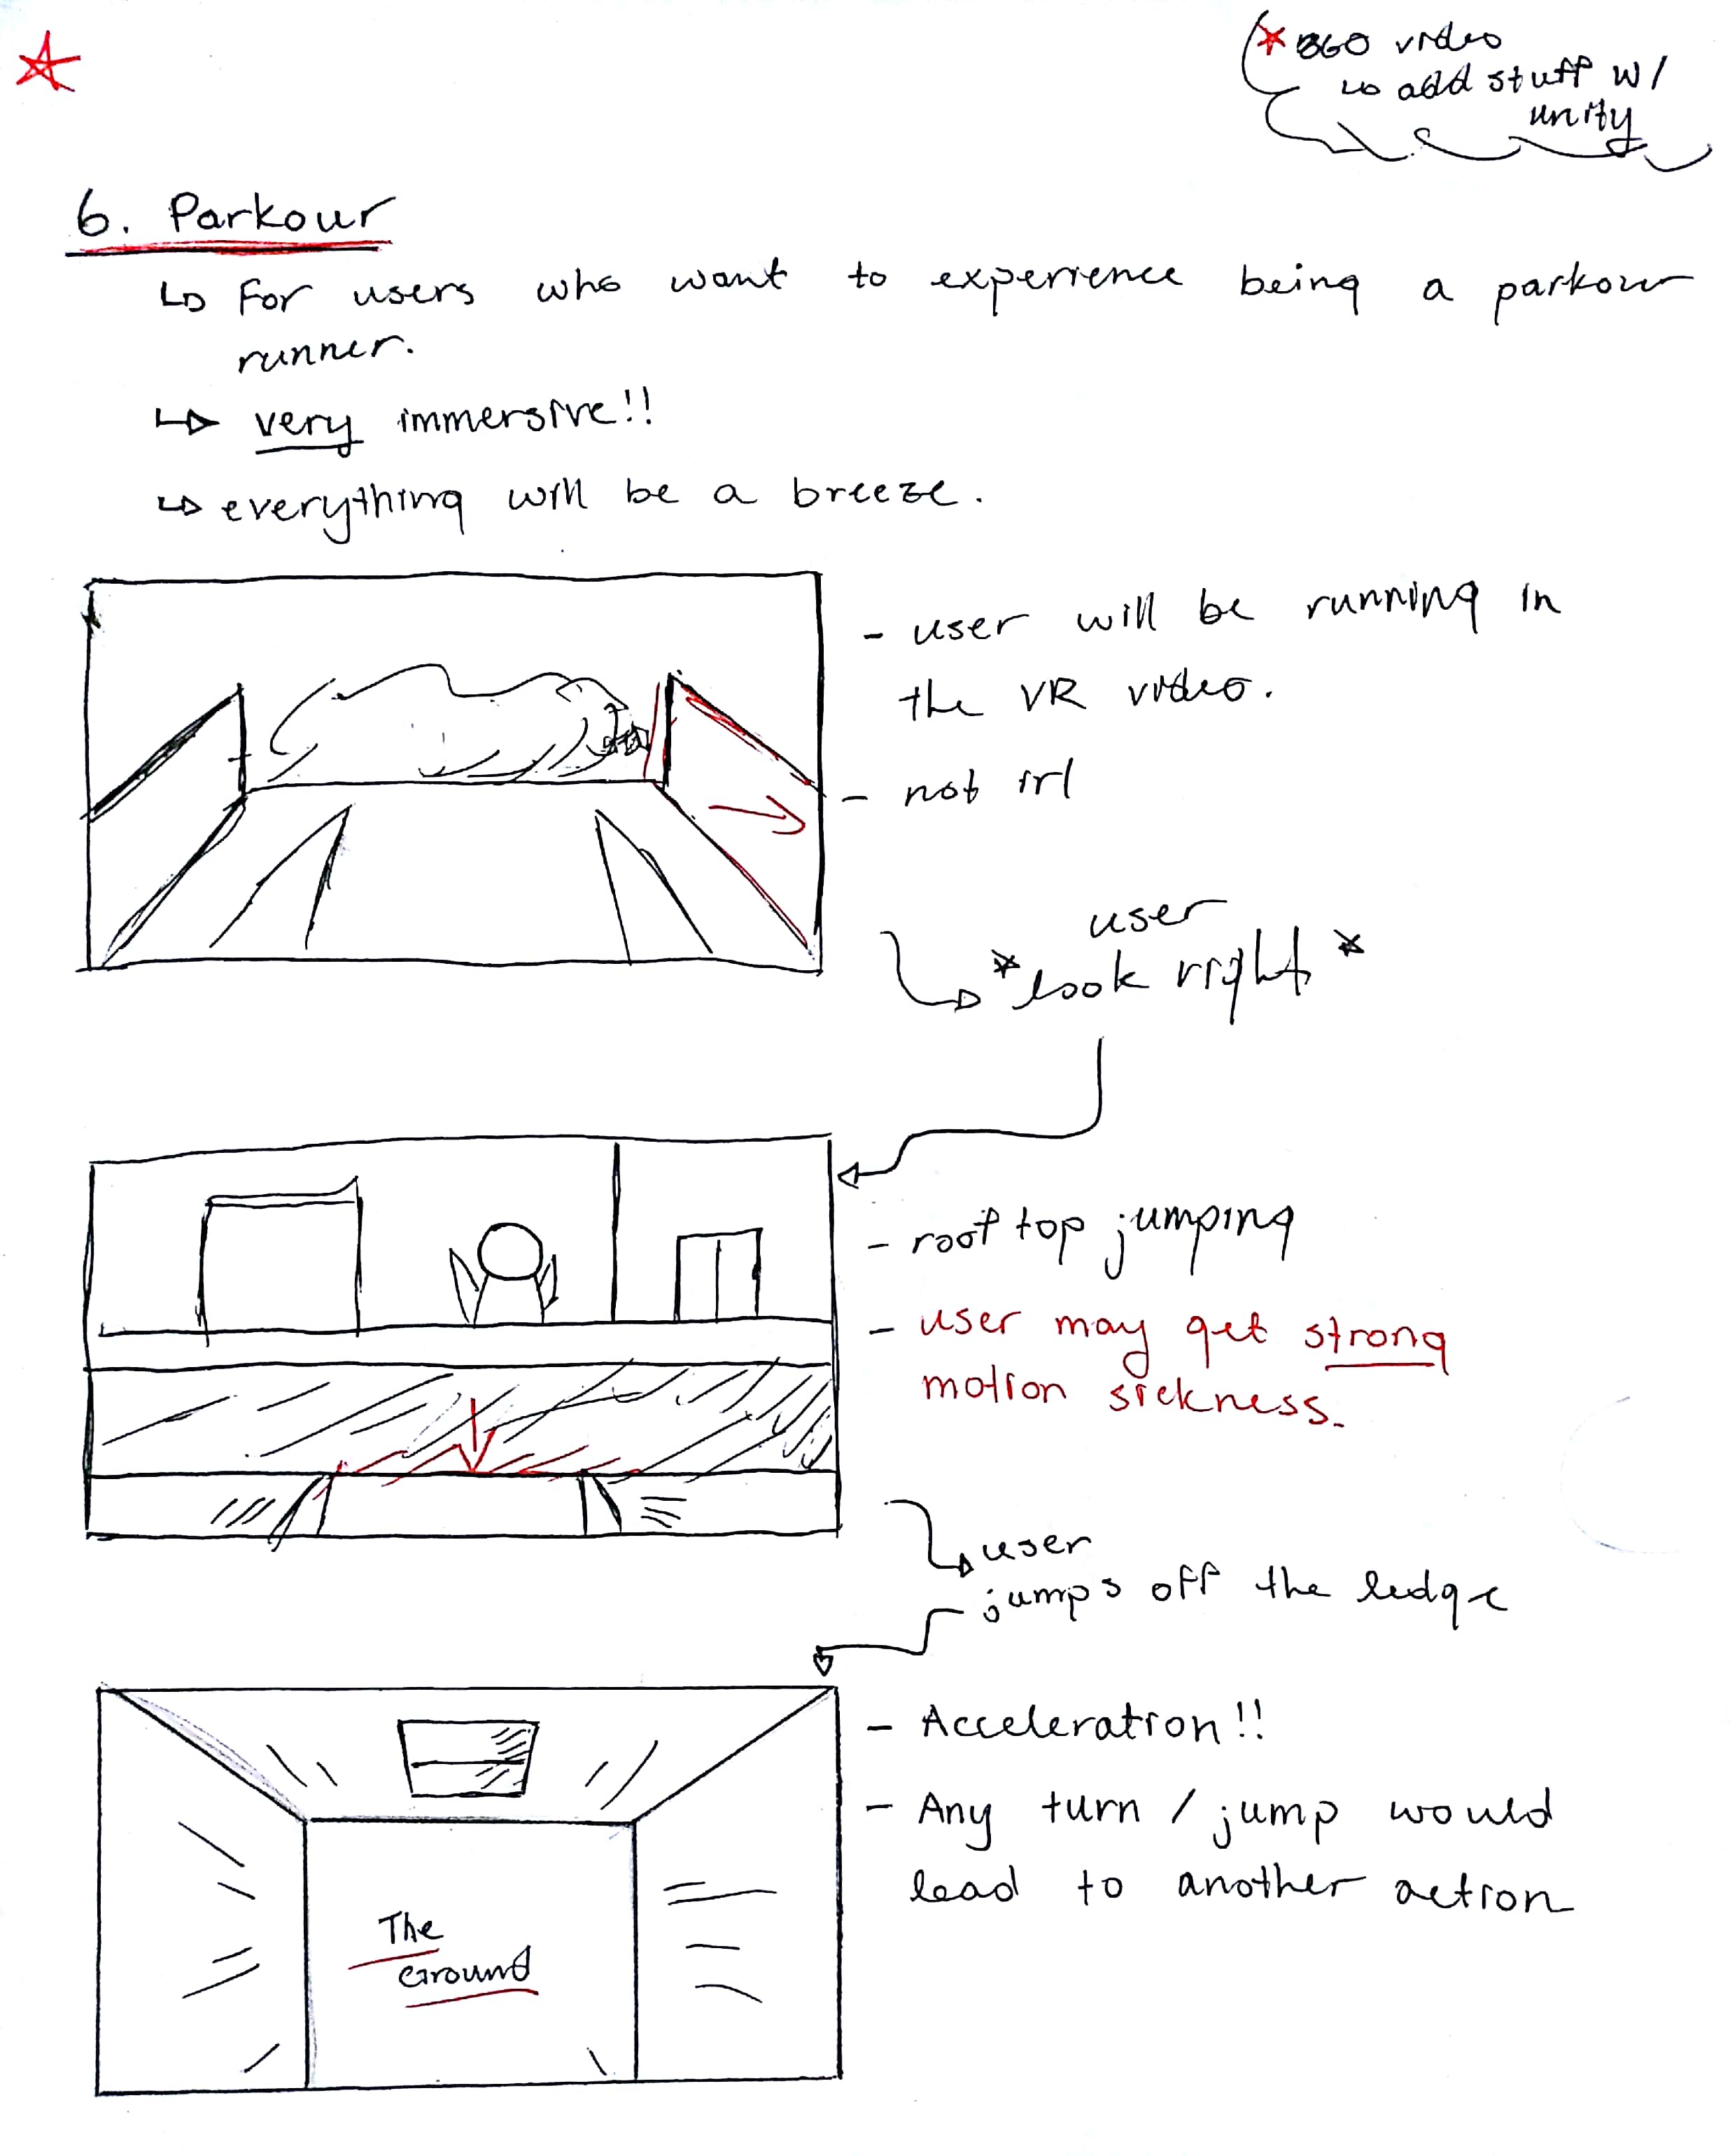 360 video
add stuff w/
unity
6. Parkour
For users who want to experience being a parkour
runner.
very immersive!!
everything will be a breeze.
- user will be running in
the VR video.
- not irl
user
*look right*
- roof top jumping
- user may get strong
motion sickness.
user
jumps off the ledge
- Acceleration!!
- Any turn / jump would
lead to another action
The
Ground